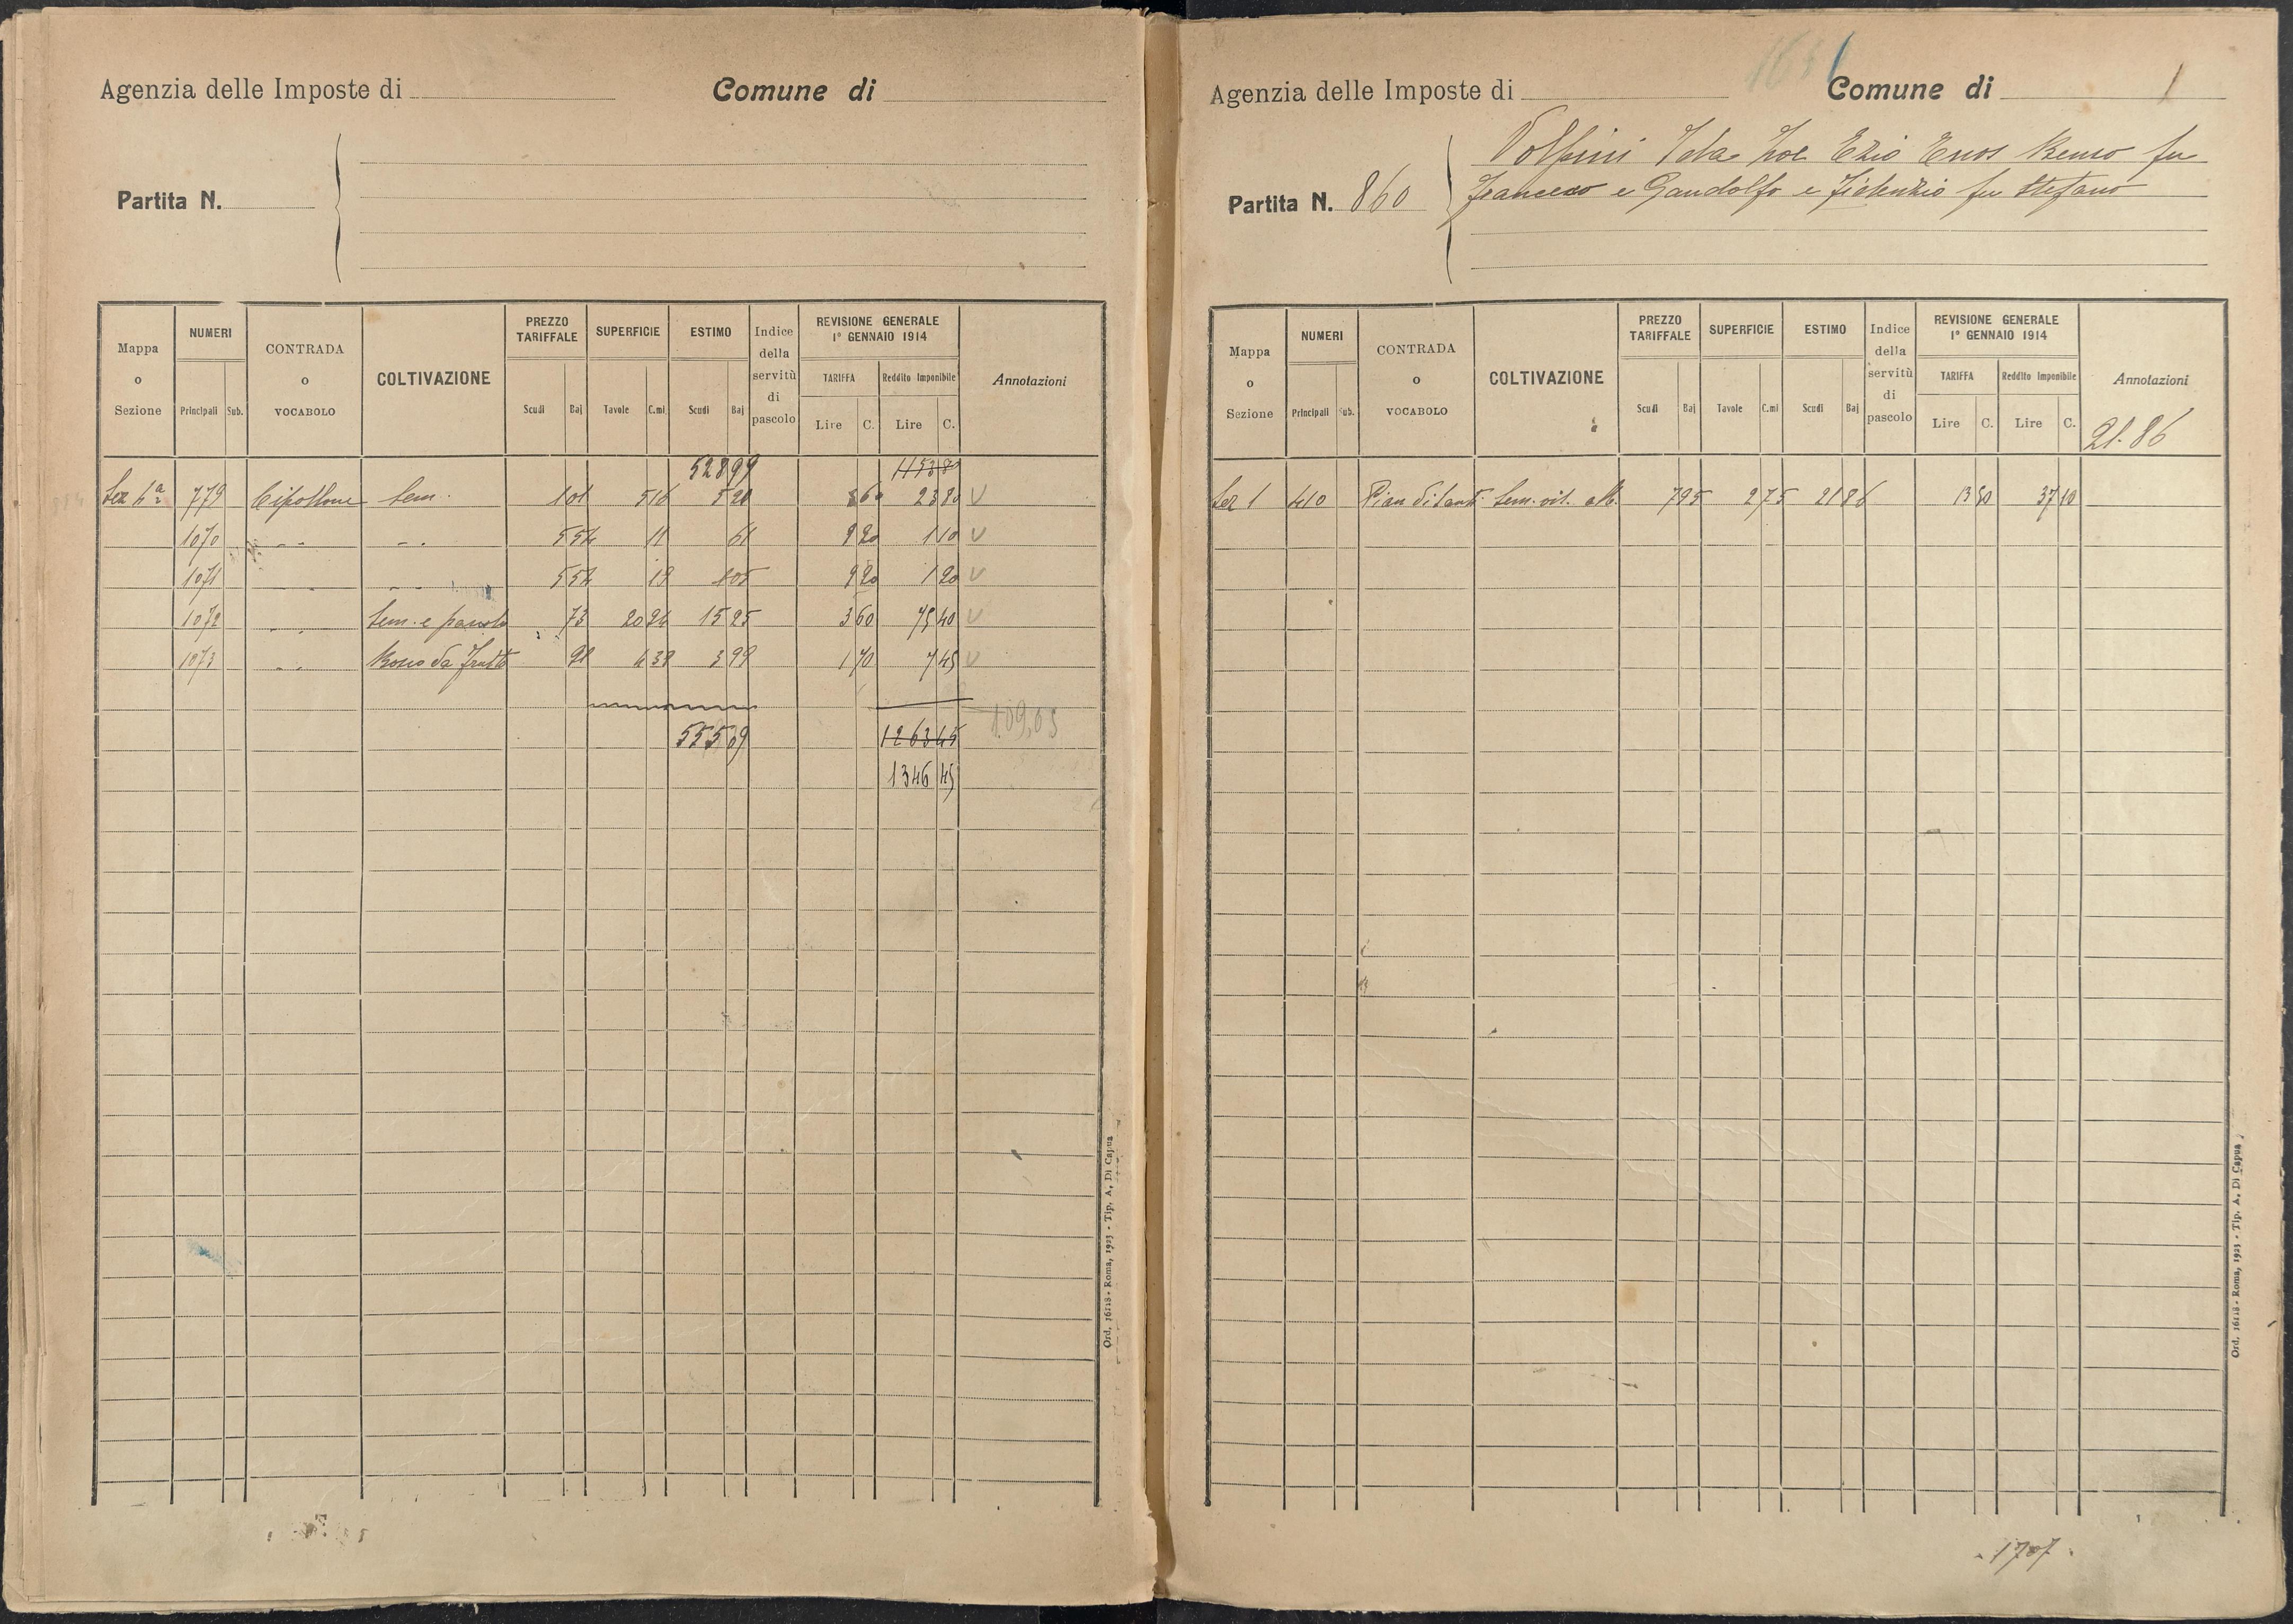 Agenzia delle Imposte di
Comune di
Partita N.
Mappa o Sezione
NUMERI
Principali
Sub.
CONTRADA o VOCABOLO
COLTIVAZIONE
PREZZO TARIFFALE
Scudi
Baj
SUPERFICIE
Tavole
C.mi
ESTIMO
Scudi
Baj
Indice della servitù di pascolo
REVISIONE GENERALE
1° GENNAIO 1914
TARIFFA
Lire
C.
Reddito Imponibile
Lire
C.
Annotazioni
528 99 1153 80
Sez 4ª 779 Cipollone Sem. 1 01 5 16 5 20 8 60 23 80 V
1070 " " " " 5 54 11 61 9 20 1 10 V
1071 " " " " 5 54 19 1 05 9 20 1 20 V
1072 " " Sem. e pascolo 73 20 24 15 25 3 60 75 40 V
1073 " " Bosco da frutto 91 4 39 3 99 1 70 7 45 V
109,05
555 09 1263 45
1346 45
Ord. 16118 - Roma, 1923 - Tip. A. Di Capua
Agenzia delle Imposte di
Comune di 1
Partita N. 860
Volpini Ida Zoe Ezio Enos Renso fu
Francesco e Gandolfo e Fidenzio fu Stefano
Mappa o Sezione
NUMERI
Principali
Sub.
CONTRADA o VOCABOLO
COLTIVAZIONE
PREZZO TARIFFALE
Scudi
Baj
SUPERFICIE
Tavole
C.mi
ESTIMO
Scudi
Baj
Indice della servitù di pascolo
REVISIONE GENERALE
1° GENNAIO 1914
TARIFFA
Lire
C.
Reddito Imponibile
Lire
C.
Annotazioni
21.86
Sez 1 410 Pian di Santi Sem. vit. alb. 7 95 2 75 21 86 13 50 37 10
Ord. 16118 - Roma, 1923 - Tip. A. Di Capua
1707